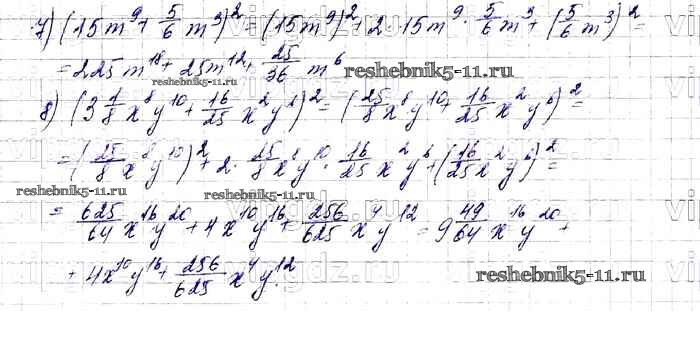 7) (15m⁹ + 5/6 m³)² = (15m⁹)² + 2 · 15m⁹ · 5/6 m³ + (5/6 m³)² =
= 225m¹⁸ + 25m¹² + 25/36 m⁶
reshebnik5-11.ru
8) (3 1/8 x⁸y¹⁰ + 16/25 x²y⁶)² = (25/8 x⁸y¹⁰ + 16/25 x²y⁶)² =
= (25/8 x⁸y¹⁰)² + 2 · 25/8 x⁸y¹⁰ · 16/25 x²y⁶ + (16/25 x²y⁶)² =
reshebnik5-11.ru
reshebnik5-11.ru
= 625/64 x¹⁶y²⁰ + 4x¹⁰y¹⁶ + 256/625 x⁴y¹² = 9 49/64 x¹⁶y²⁰ +
+ 4x¹⁰y¹⁶ + 256/625 x⁴y¹².
reshebnik5-11.ru